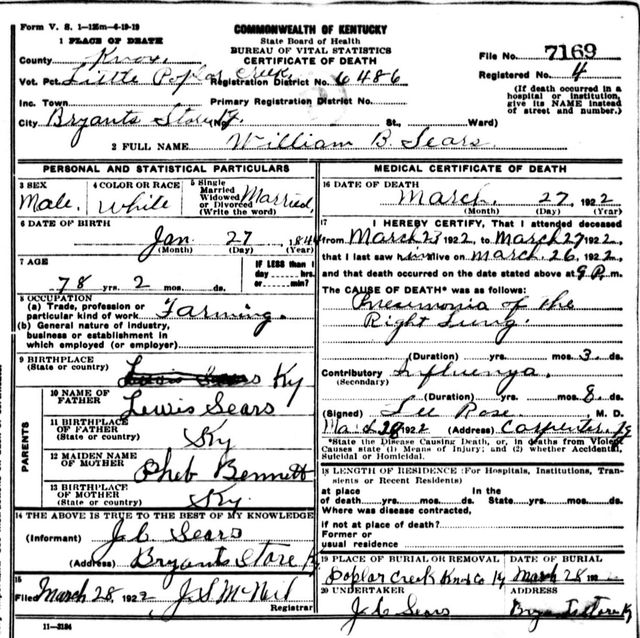 Form V. S. 1—125m—6-19-19
COMMONWEALTH OF KENTUCKY
State Board of Health
BUREAU OF VITAL STATISTICS
CERTIFICATE OF DEATH
1 PLACE OF DEATH
County Knox
File No. 7169
Vot. Pct. Little Poplar Creek Registration District No. 6486
Registered No. 4
Inc. Town
Primary Registration District No.
(If death occurred in a hospital or institution, give its NAME instead of street and number.)
City Bryants Store (No. St., Ward)
2 FULL NAME William B. Sears
PERSONAL AND STATISTICAL PARTICULARS
3 SEX Male
4 COLOR OR RACE White
5 Single Married Widowed or Divorced (Write the word) Married
6 DATE OF BIRTH
Jan 27 1844
(Month) (Day) (Year)
7 AGE
78 yrs. 2 mos. ds.
IF LESS than 1 day.... hrs. or.... min?
8 OCCUPATION
(a) Trade, profession or particular kind of work Farming
(b) General nature of industry, business or establishment in which employed (or employer)
9 BIRTHPLACE
(State or country) Ky
PARENTS
10 NAME OF FATHER Lewis Sears
11 BIRTHPLACE OF FATHER
(State or country) Ky
12 MAIDEN NAME OF MOTHER Pheb Bennett
13 BIRTHPLACE OF MOTHER
(State or country) Ky.
14 THE ABOVE IS TRUE TO THE BEST OF MY KNOWLEDGE
(Informant) J.C. Sears
(Address) Bryants Store Ky
15
Filed March 28 1922 J S McNeil
Registrar
11—3184
MEDICAL CERTIFICATE OF DEATH
16 DATE OF DEATH
March 27 1922
(Month) (Day) (Year)
17 I HEREBY CERTIFY, That I attended deceased
from March 23 1922, to March 27 1922,
that I last saw him alive on March 26, 1922,
and that death occurred on the date stated above at 9 P. m.
The CAUSE OF DEATH* was as follows:
Pneumonia of the
Right Lung.
(Duration) yrs. mos. 3 ds.
Contributory Influenza
(Secondary)
(Duration) yrs. mos. 8 ds.
(Signed) Lee Rose, M. D.
Mar 28 1922 (Address) Carpenter, Ky
*State the Disease Causing Death, or, in deaths from Violent Causes state (1) Means of Injury; and (2) whether Accidental, Suicidal or Homicidal.
18 LENGTH OF RESIDENCE (For Hospitals, Institutions, Transients or Recent Residents)
at place of death yrs. mos. ds. In the State yrs. mos. ds.
Where was disease contracted, if not at place of death?
Former or usual residence
19 PLACE OF BURIAL OR REMOVAL Poplar Creek Knox Co Ky
DATE OF BURIAL March 28 192
20 UNDERTAKER J C Sears
ADDRESS Bryants Store Ky